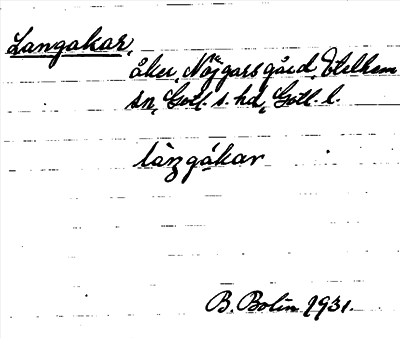 Langakar,
åker, Nöjgarsgård, Etelhem
sn, Gotl. s. hd, Gotl. l.
låŋgákar
B. Bolin 1931.